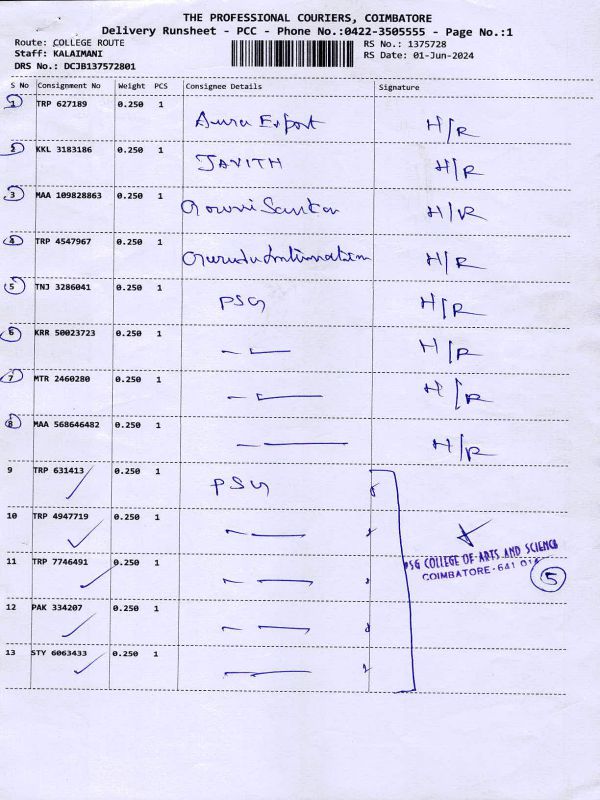 THE PROFESSIONAL COURIERS, COIMBATORE
Delivery Runsheet - PCC - Phone No.:0422-3505555 - Page No.:1
Route: COLLEGE ROUTE
Staff: KALAIMANI
DRS No.: DCJB137572801
RS No.: 1375728
RS Date: 01-Jun-2024
S No Consignment No Weight PCS Consignee Details Signature
1 TRP 627189 0.250 1 Aura Export H/R
2 KKL 3183186 0.250 1 JAVITH H/R
3 MAA 109828863 0.250 1 Gowri Sankar H/R
4 TRP 4547967 0.250 1 H/R
5 TNJ 3286041 0.250 1 PSG H/R
6 KRR 50023723 0.250 1 H/R
7 MTR 2460280 0.250 1 H/R
8 MAA 568646482 0.250 1 H/R
9 TRP 631413 0.250 1 PSG
10 TRP 4947719 0.250 1
11 TRP 7746491 0.250 1
12 PAK 334207 0.250 1
13 STY 6063433 0.250 1
PSG COLLEGE OF ARTS AND SCIENCE
COIMBATORE - 641 014
5